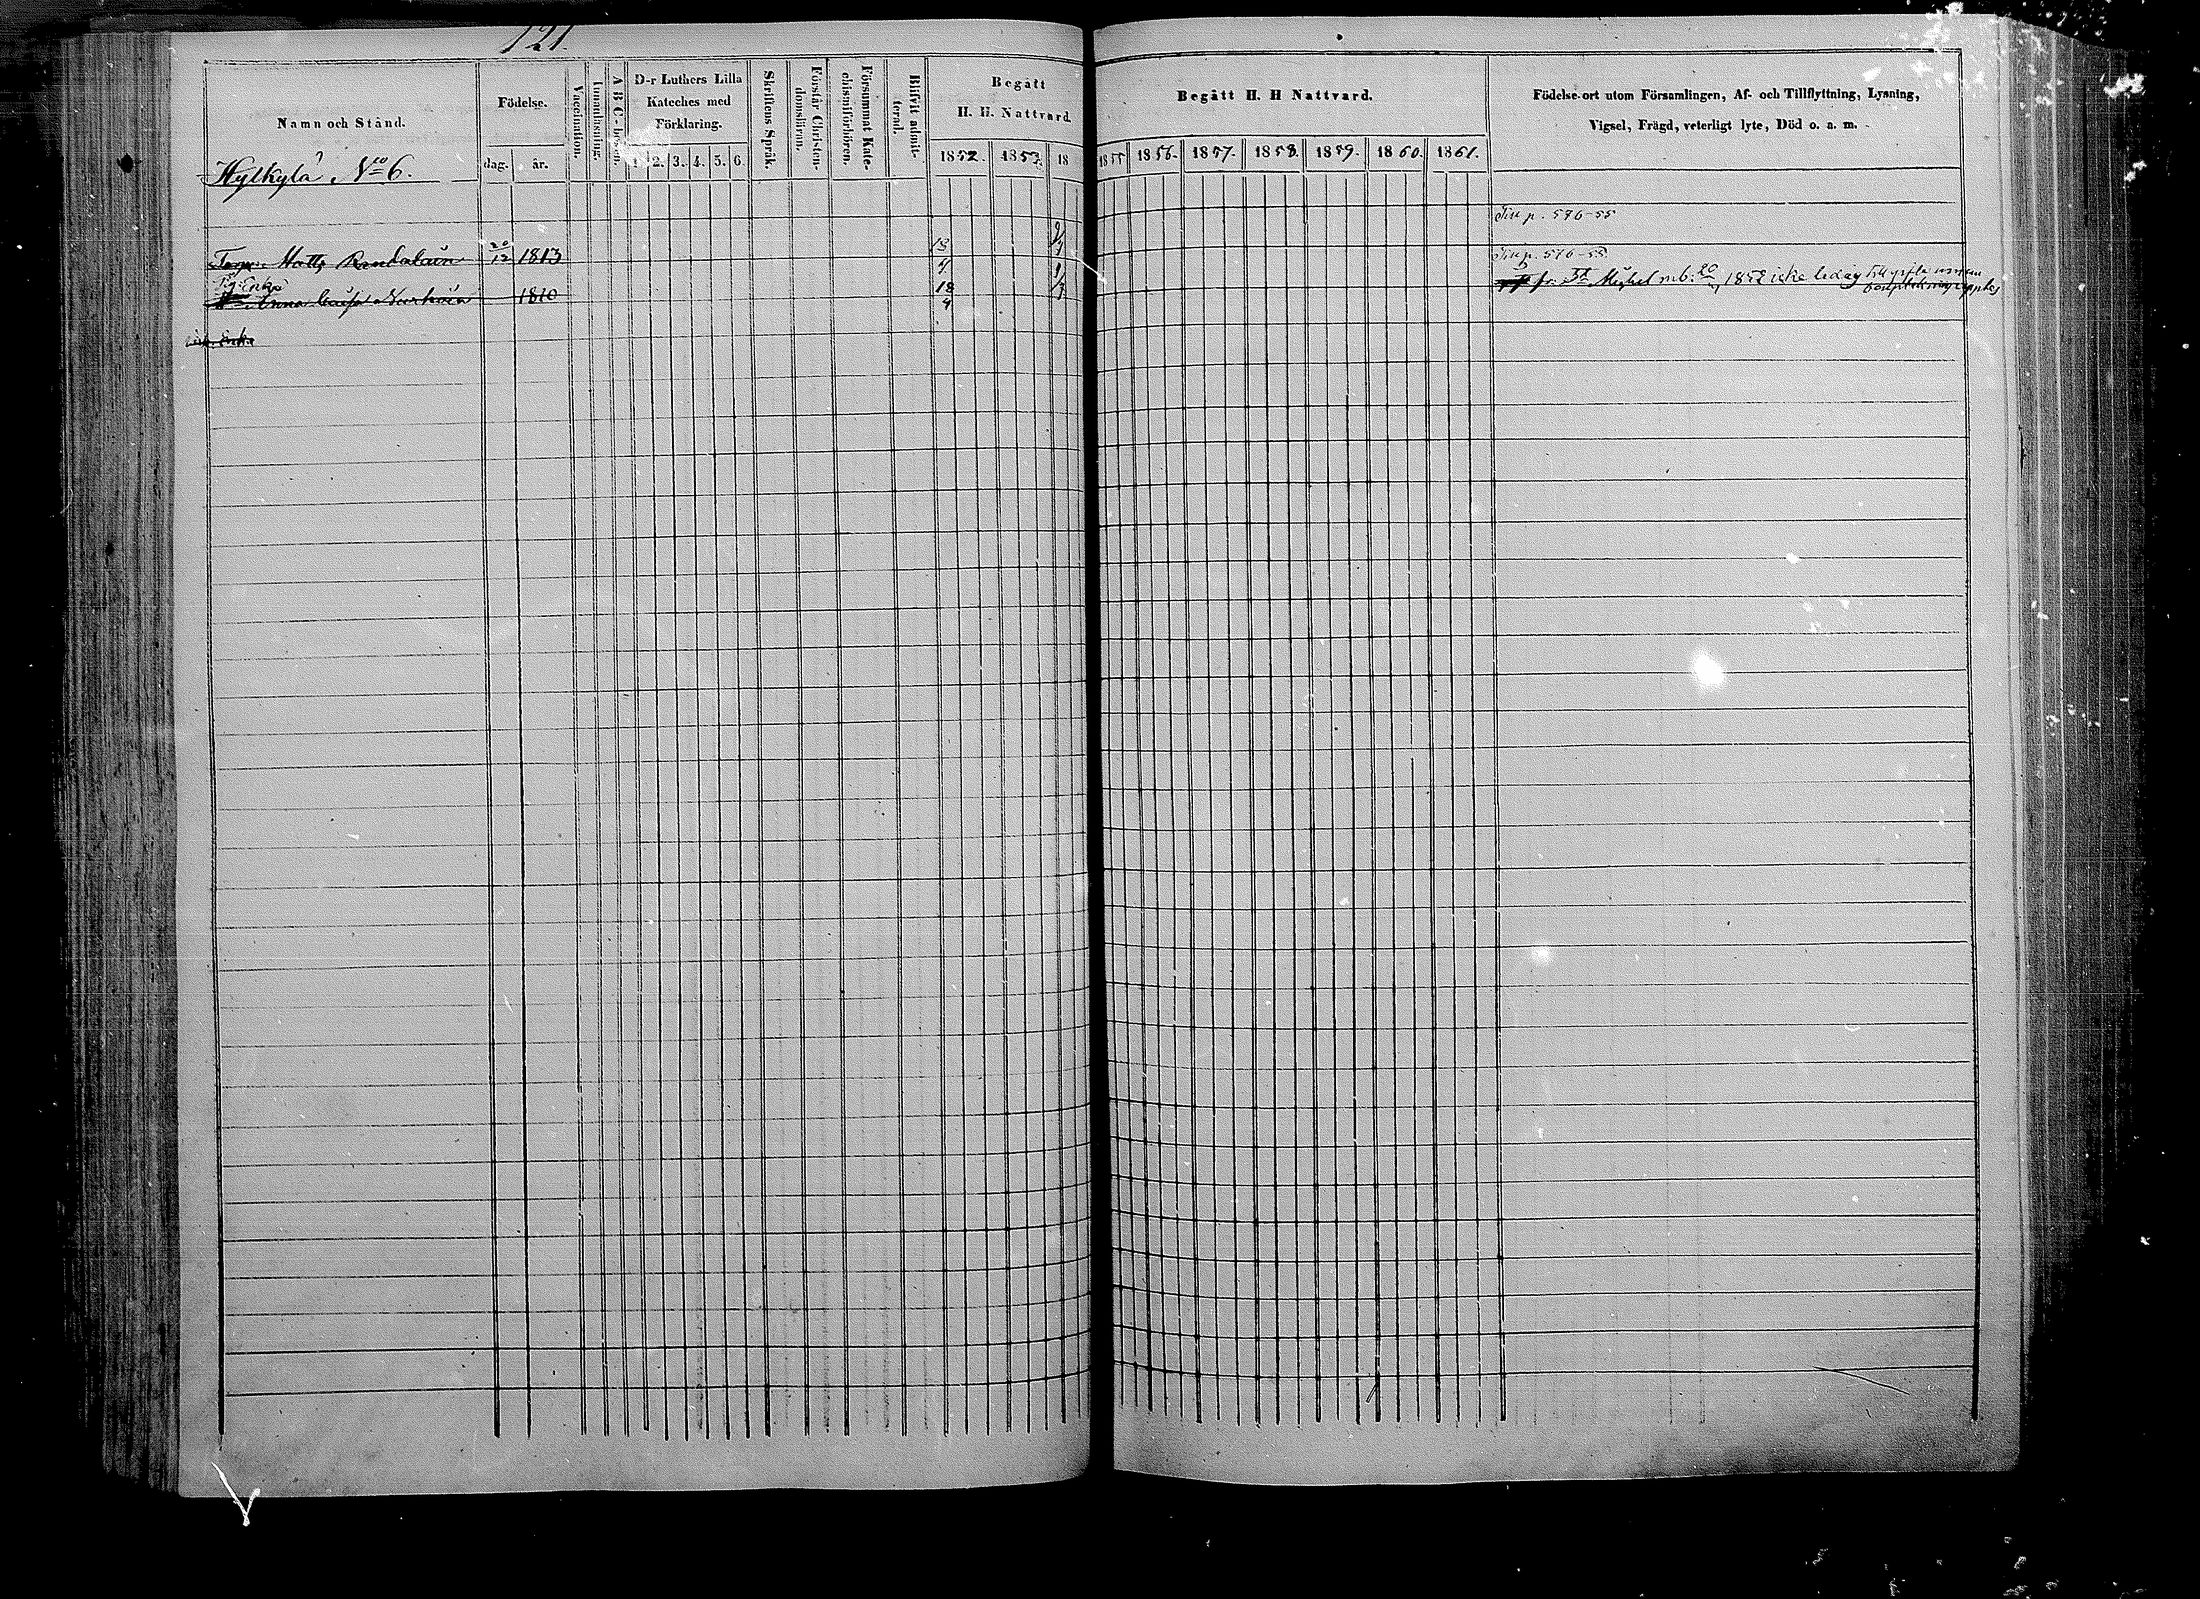 121.
Namn och Stånd.
Födelse.
dag. år.
Vaccination.
Innanläsning.
A B C-boken.
D-r Luthers Lilla
Kateches med
Förklaring.
1. 2. 3. 4. 5. 6.
Skriftens Språk.
Förstår Christen-
domsläran.
Försummat Kate-
chismiförhören.
Blifvit admit-
terad.
Begått
H. H. Nattvard.
1852. 1853. 18
Begått H. H Nattvard.
1855 1856. 1857. 1858. 1859. 1860. 1861.
Födelse-ort utom Församlingen, Af- och Tillflyttning, Lysning,
Vigsel, Frägd, veterligt lyte, Död o. a. m.
Hylkylä No 6.
Till p. 576-55
Torp. Matts 20/12 1813
Till p. 576-55
Enka
Anna 1810 18/4
fr. St Michel m.b. 1852 icke ledag
Enka